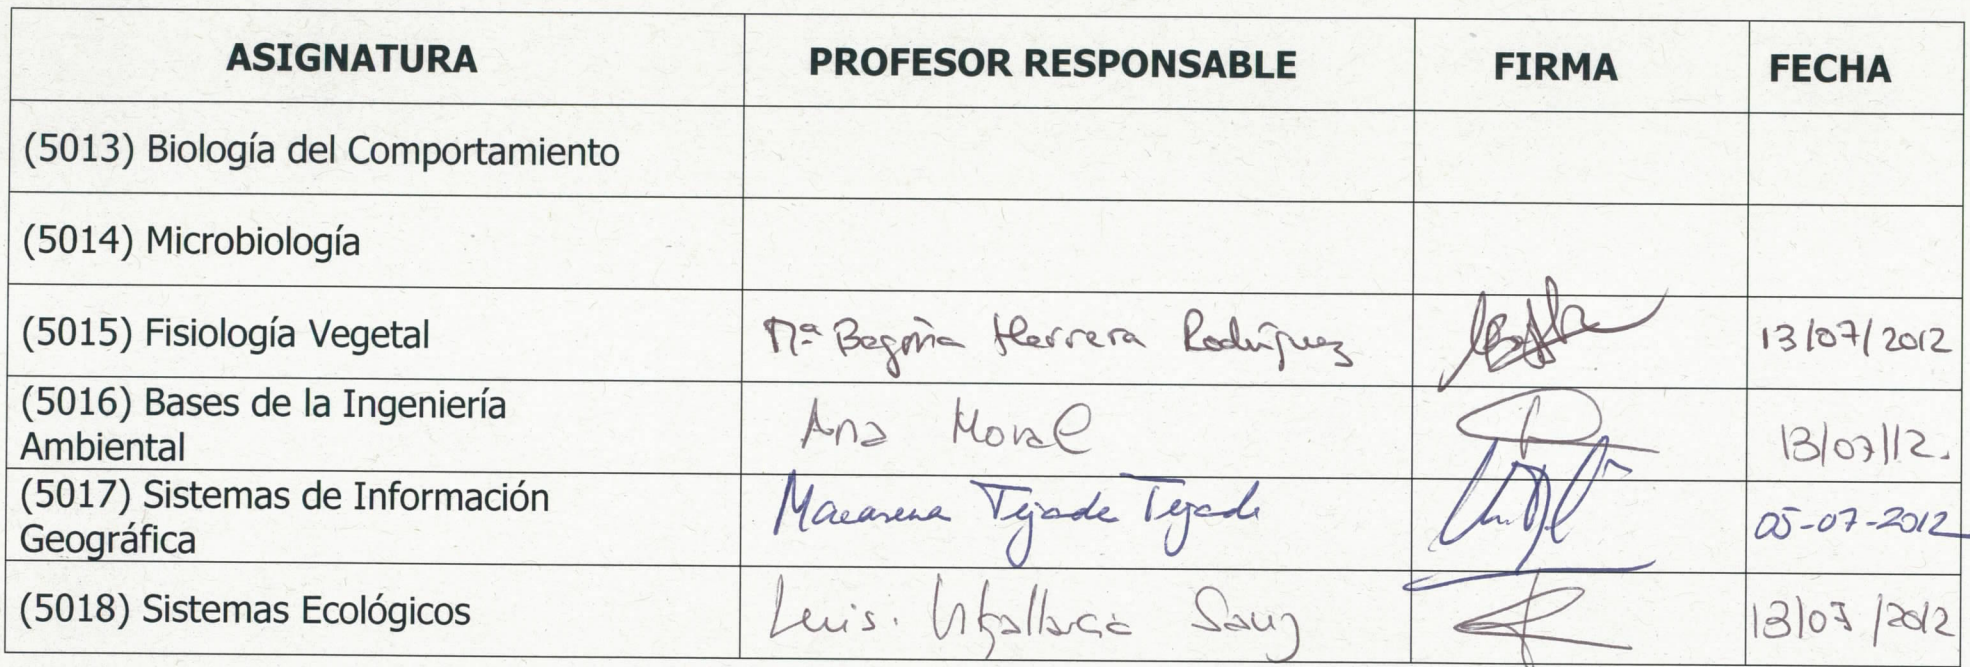 ASIGNATURA PROFESOR RESPONSABLE FIRMA FECHA
(5013) Biología del Comportamiento
(5014) Microbiología
(5015) Fisiología Vegetal Mª Begoña Herrera Rodríguez 13/07/2012
(5016) Bases de la Ingeniería
Ambiental Ana Moral 13/07/12.
(5017) Sistemas de Información
Geográfica Macarena Tejada Tejada 05-07-2012
(5018) Sistemas Ecológicos Luis. Sanz 13/07/2012